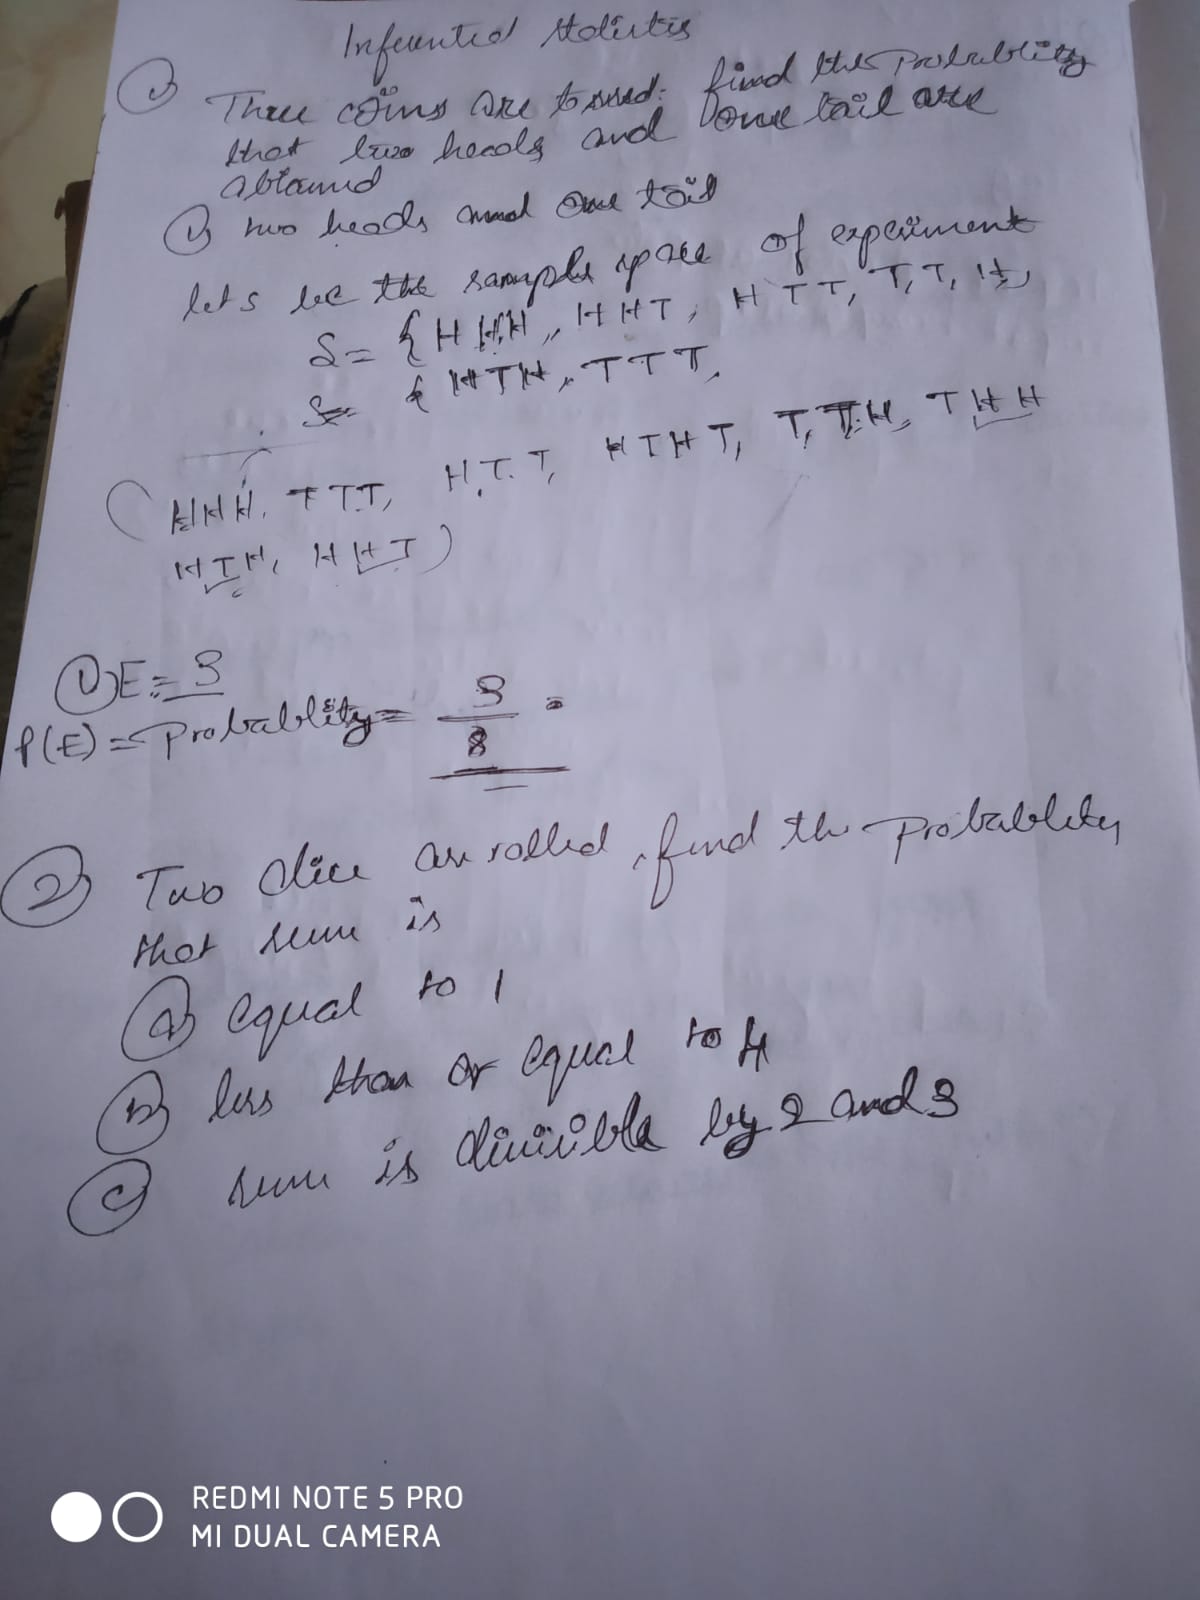 Inferential Statistics
1) Three coins are tossed. find the Probablity
that two heads and one tail are
obtained
1) two heads and one tail
let s be the sample space of experiment
S = { H H H, H H T, H T T, T, T, H,
S = { H T H, T T T,
( H H H, T T T, H. T. T, H T H T, T, T H, T H H
H T H, H H T )
1) E = 3
P(E) = Probablity = 3
8
2) Two dice are rolled, find the probablity
that sum is
a) equal to 1
b) less than or equal to 4
c) sum is divisible by 2 and 3
REDMI NOTE 5 PRO
MI DUAL CAMERA